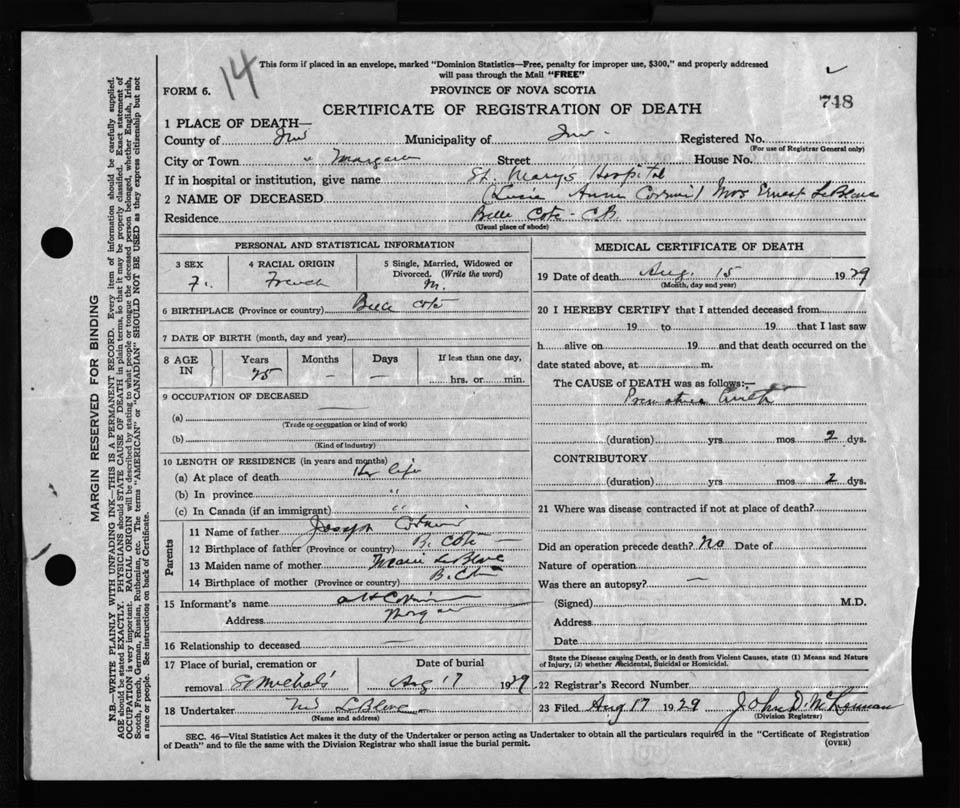 14
This form if placed in an envelope, marked "Dominion Statistics—Free, penalty for improper use, $300," and properly addressed
will pass through the Mail "FREE"
FORM 6.
PROVINCE OF NOVA SCOTIA
748
CERTIFICATE OF REGISTRATION OF DEATH
1 PLACE OF DEATH—
County of Inv Municipality of Inv. Registered No.
(For use of Registrar General only)
City or Town " Margaree Street House No.
If in hospital or institution, give name St. Marys Hospital
2 NAME OF DECEASED (Lucie Anne ) Mrs Ernest LeBlanc
Residence Belle Cote - C.B.
(Usual place of abode)
PERSONAL AND STATISTICAL INFORMATION
3 SEX
F.
4 RACIAL ORIGIN
French
5 Single, Married, Widowed or
Divorced. (Write the word)
M.
6 BIRTHPLACE (Province or country) Belle Cote
7 DATE OF BIRTH (month, day and year)
8 AGE IN
Years Months Days
25 — —
If less than one day,
hrs. or min.
9 OCCUPATION OF DECEASED
(a)
(Trade or occupation or kind of work)
(b)
(Kind of industry)
10 LENGTH OF RESIDENCE (in years and months)
(a) At place of death life
(b) In province "
(c) In Canada (if an immigrant) "
Parents
11 Name of father Joseph
12 Birthplace of father (Province or country) B. Cote —
13 Maiden name of mother Marie LeBlanc
14 Birthplace of mother (Province or country)
15 Informant's name
Address
16 Relationship to deceased
17 Place of burial, cremation or
removal St Michals
Date of burial
Aug 17 1929
18 Undertaker LeBlanc
(Name and address)
MEDICAL CERTIFICATE OF DEATH
19 Date of death Aug. 15 1929
(Month, day and year)
20 I HEREBY CERTIFY that I attended deceased from
19 to 19 that I last saw
h alive on 19 and that death occurred on the
date stated above, at m.
The CAUSE of DEATH was as follows:—
Premature
(duration) yrs mos 2 dys.
CONTRIBUTORY
(duration) yrs mos 2 dys.
21 Where was disease contracted if not at place of death?
Did an operation precede death? No Date of
Nature of operation
Was there an autopsy? —
(Signed) M.D.
Address
Date
State the Disease causing Death, or in death from Violent Causes, state (1) Means and Nature
of Injury, (2) whether Accidental, Suicidal or Homicidal.
22 Registrar's Record Number
23 Filed Aug 17 1929 John D.
(Division Registrar)
SEC. 46—Vital Statistics Act makes it the duty of the Undertaker or person acting as Undertaker to obtain all the particulars required in the "Certificate of Registration
of Death" and to file the same with the Division Registrar who shall issue the burial permit.
(OVER)
MARGIN RESERVED FOR BINDING
N.B.—WRITE PLAINLY WITH UNFADING INK—THIS IS A PERMANENT RECORD. Every item of information should be carefully supplied.
AGE should be stated EXACTLY. PHYSICIANS should STATE CAUSE OF DEATH in plain terms, so that it may be properly classified. Exact statement of
OCCUPATION is very important. RACIAL ORIGIN will be described by stating to what people or tongue the deceased person belonged, whether English, Irish,
Scotch, French, German, Russian, Ruthenian, etc. The terms "AMERICAN" or "CANADIAN" SHOULD NOT BE USED as they express citizenship but not
a race or people. See instructions on back of Certificate.